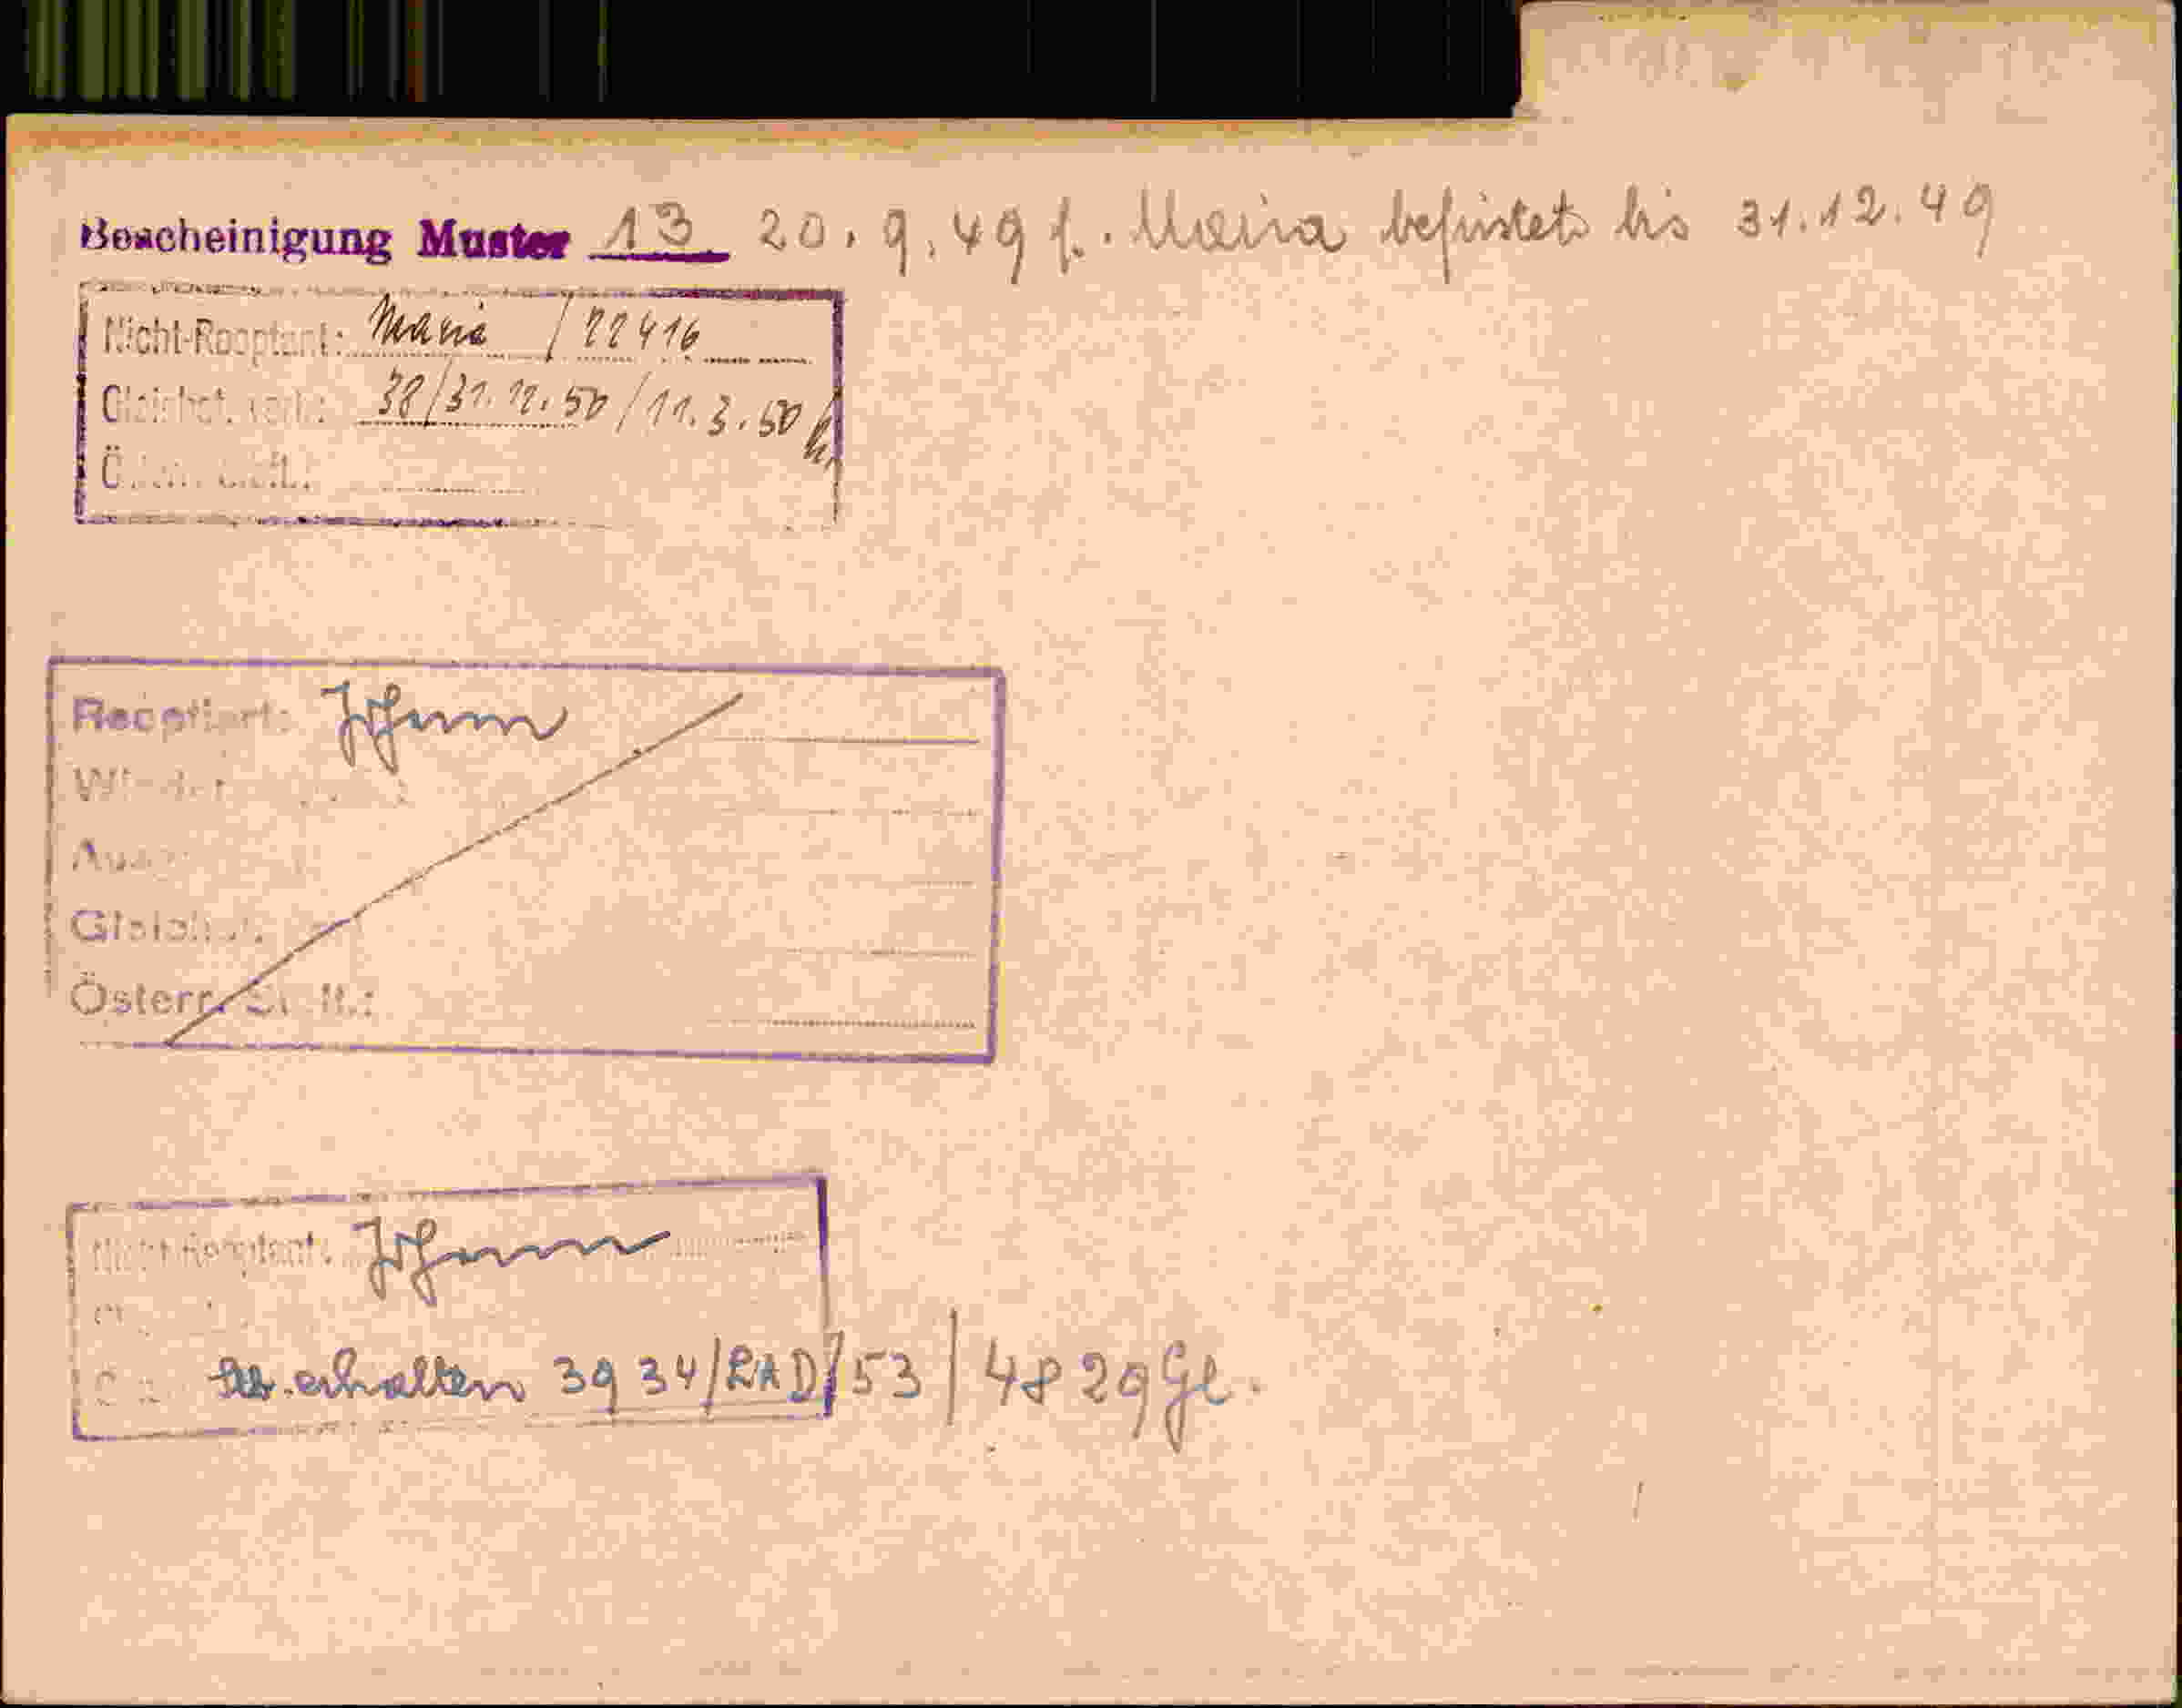 Bescheinigung Muster 13 20.9.49 f. Maria befristet bis 31.12.49
Nicht-Reoptant: Maria / 22416
Gleichst. verl.: 38/31.12.50 / 11.3.50
Reoptiert: Johann
Gleichst.
Österr.
Nicht-Reoptant: Johann
erhalten 3934/LAD/53 / 4829 Gl.